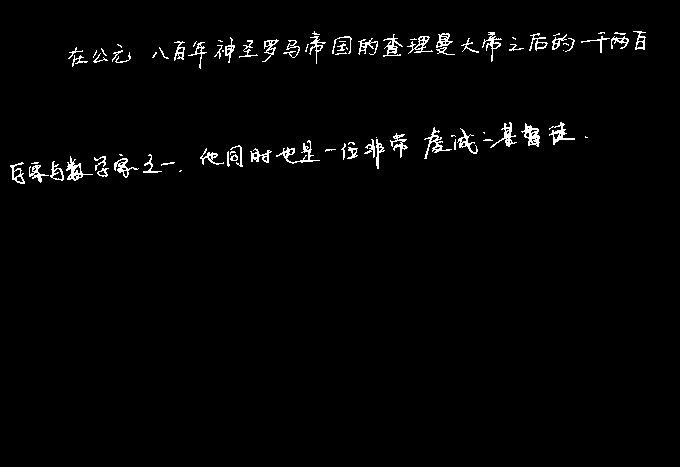 在公元八百年神圣罗马帝国的查理曼大帝之后的一千两百
与数学家之一,他同时也是一位非常虔诚之基督徒.